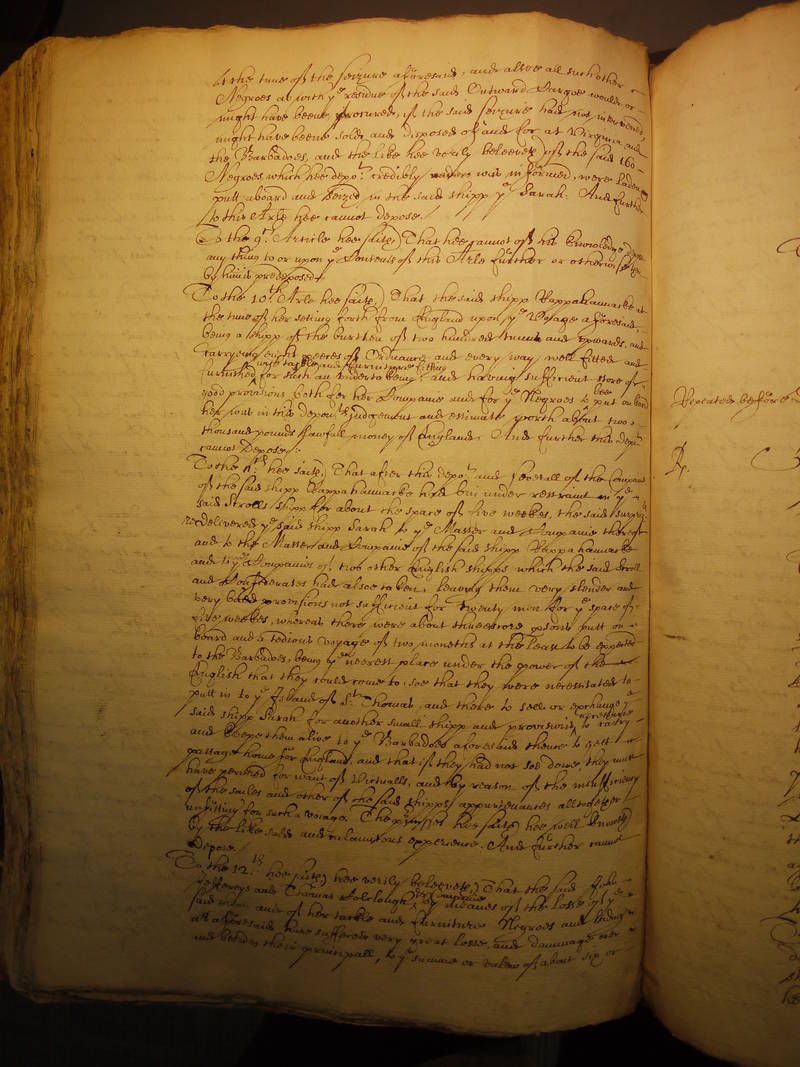 at the time of the seizure aforesaid, and alsoe all such other
Negroes as with ye residue of the said Outward Cargoe would or
might have beene procured, if the said seizure had not intervened,
might have beene sold and disposed of and for at Virginia and
the Barbadoes, and the like hee verily beleeveth of the said 160
Negroes, which hee depot. credibly was informed, were laden
putt aboard and seized in the said shipp ye Sarah. And further
to this Arle hee cannot depose./
To the 9th. Article hee saith, That hee cannot of his knowledge depose
any thing to or upon ye Contents of this Arle further or otherwise then
by him is predeposed
To the 10th Arle hee saith, That the said shipp Rappahannacke at
the time of her setting forth from England upon ye Voyage aforesaid,
being a shipp of the burthen of two hundred tunns and upwards, and
carrying eight peeces of Ordnance and every way well fitted and
with tackle and furniture fitting
furnished for such an undertakeing, and having sufficient store of
good provisions both for her Companie and for ye Negroes to bee putt on board
her, was in this deponts. judgement and estimate worth about two
thousand pounds lawfull money of England. And further this depot.
cannot Depose./
To the 11th. hee saith, That after this depot. and severall of the Companie
of the said shipp Rappahannacke had bin under restraint in ye
said Strolls shipp for about the space of five weekes, the said
redelivered ye said shipp Sarah to ye Master and Companie thereof
and to the Master and Companie of the said shipp Rappahannacke
and to ye Companies of two other English shipps which the said Stroll
and Confederates had alsoe taken, leaving them very slender and
very bad provisions not sufficient for twenty men for ye space of
five weekes, whereas there were about threescore persons putt on
board and a tedious voyage of two moneths at the least to be expected
to the Barbadoes, being ye neerest place under the power of the
English that they could come to, soe that they were necessitated to
putt in to ye Island of St. Thomas, and there to sell or exchange ye
said shipp Sarah for another small shipp and provisions necessarie to carry
and keepe them alive to ye Barbadoes aforesaid thence to gett
passage home for England, and that if they had not soe donne, they must
have perished for want of Victualls, and by reason of the insufficiency
of the sailes and other of the said shipps appurtenances alltogeteer
unfitting for such a voyage. The premisses hee saith hee well knoweth
by the like sadd and calamitous experience. And further cannot
Depose./
To the 12th. hee saith, hee verily beleeveth, That the said John
Jeffereys and Thomas Colclough by meanes of the losse of ye
said shipp and of her tackle and furniture Negroes and lading
as aforesaid have suffered very great losse, and dammage over
and besides their principall, to ye summe or valew of about six or
Repeated before